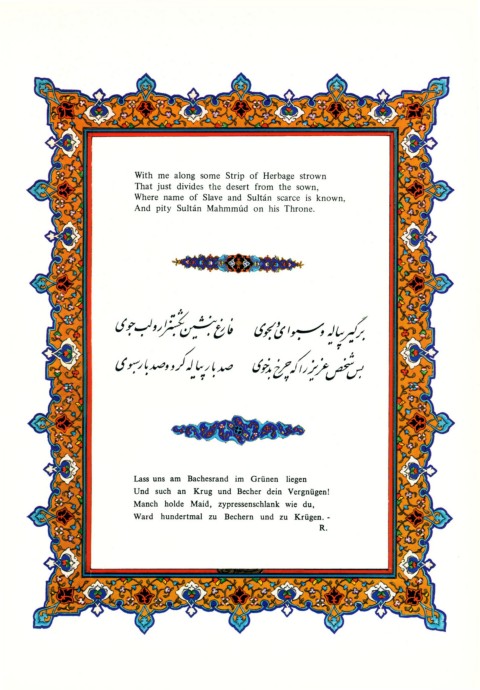 With me along some Strip of Herbage strown
That just divides the desert from the sown,
Where name of Slave and Sultán scarce is known,
And pity Sultán Mahmmúd on his Throne.
برگیر پیاله و سبو ای دلجوی فارغ بنشین بکشتزار و لب جوی
بس شخص عزیز را که چرخ بدخوی صد بار پیاله کرد و صد بار سبوی
Lass uns am Bachesrand im Grünen liegen
Und such an Krug und Becher dein Vergnügen!
Manch holde Maid, zypressenschlank wie du,
Ward hundertmal zu Bechern und zu Krügen. -
R.